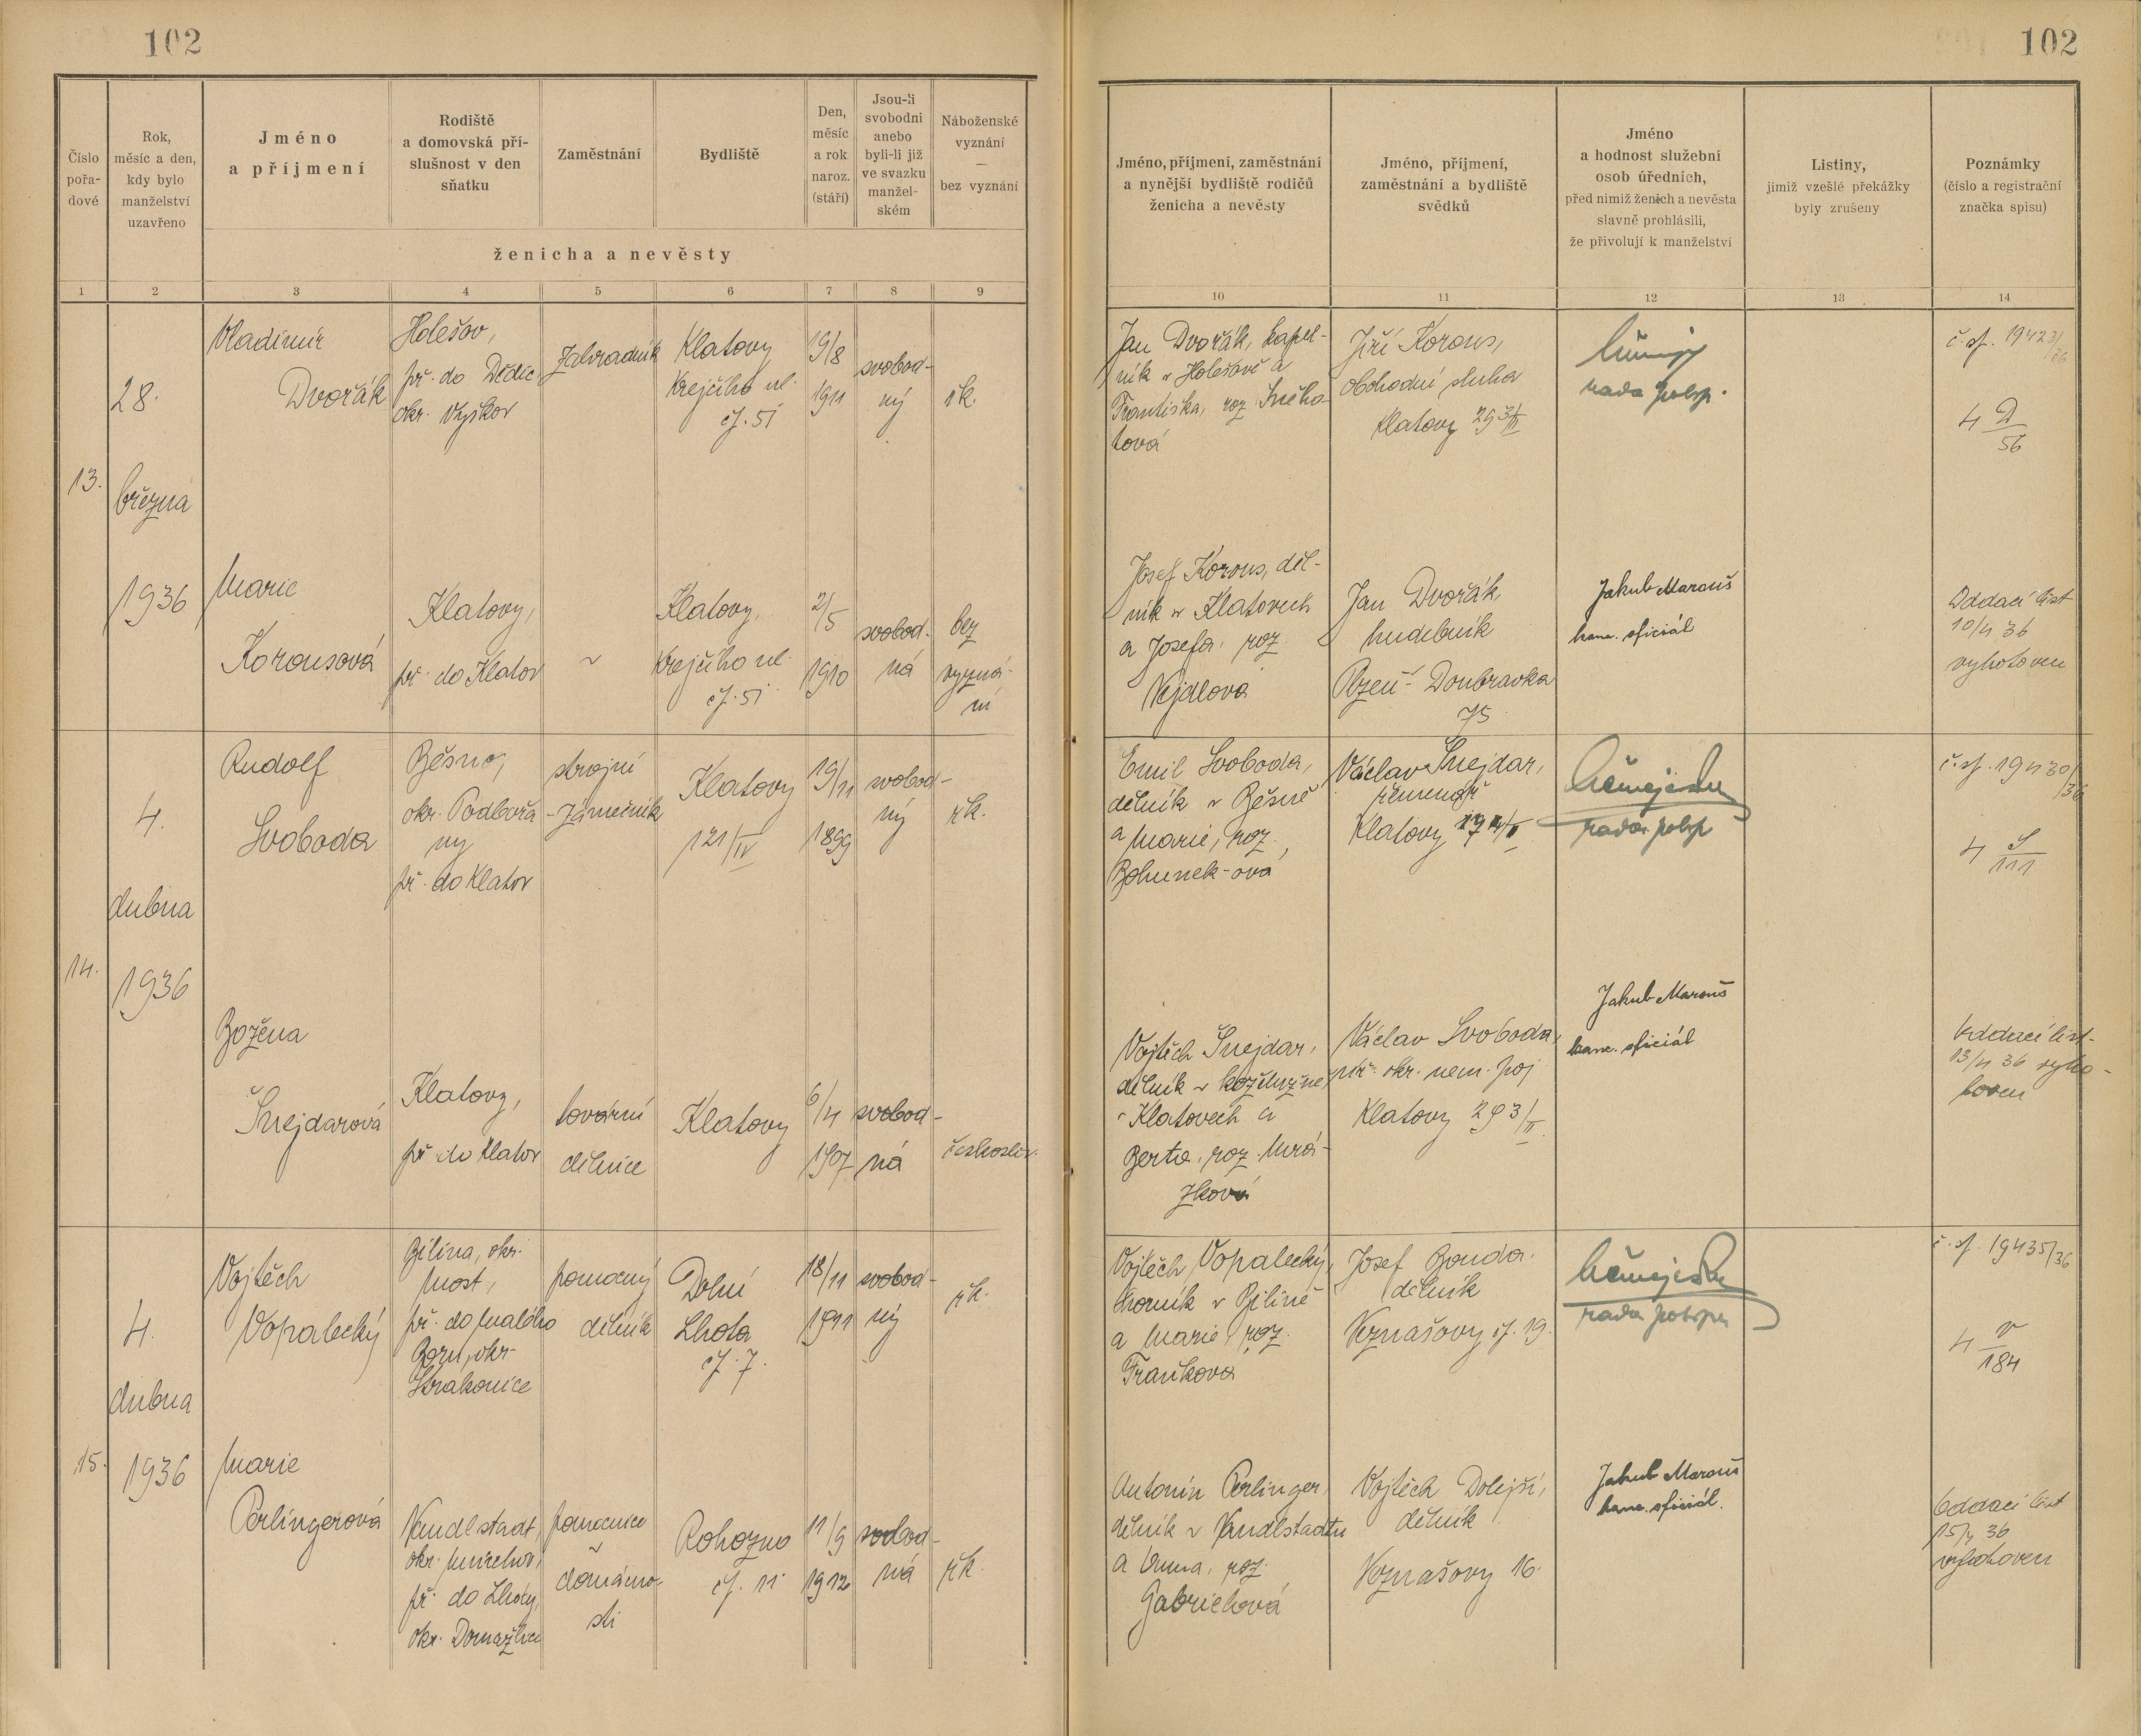 102
102
Číslo
pořa-
dové
Rok,
měsíc a den,
kdy bylo
manželství
uzavřeno
Jméno
a příjmení
Rodiště
a domovská pří-
slušnost v den
sňatku
Zaměstnání
Bydliště
Den,
měsíc
a rok
naroz.
(stáří)
Jsou-li
svobodni
anebo
byli-li již
ve svazku
manžel-
ském
Náboženské
vyznání
—
bez vyznání
ženicha a nevěsty
Jméno, příjmení, zaměstnání
a nynější bydliště rodičů
ženicha a nevěsty
Jméno, příjmení,
zaměstnání a bydliště
svědků
Jméno
a hodnost služební
osob úředních,
před nimiž ženich a nevěsta
slavně prohlásili,
že přivolují k manželství
Listiny,
jimiž vzešlé překážky
byly zrušeny
Poznámky
(číslo a registrační
značka spisu)
1 2 3 4 5 6 7 8 9 10 11 12 13 14
13.
28.
března
1936
Vladimír
Dvořák
Holešov,
př. do Dědic
okr. Vyškov
Zahradník
Klatovy
Krejčího ul.
čj. 51
19/8
1911
svobod-
ný
řk.
Jan Dvořák, kapel-
ník v Holešově a
Františka, roz. Sneho-
tová
Jiří Korous,
obchodní sluha
Klatovy 293/II
rada pol. sp.
č. sp. 19423/36
4 D/56
Marie
Korousová
Klatovy,
př. do Klatov
~
Klatovy,
Krejčího ul.
čj. 51
2/5
1910
svobod-
ná
bez
vyzná-
ní
Josef Korous, děl-
ník v Klatovech
a Josefa, roz.
Vejdlová
Jan Dvořák,
hudebník
Plzeň - Doubravka
75
Jakub Marouš
kanc. oficiál
Oddací list
10/4 36
vyhotoven
14.
4.
dubna
1936
Rudolf
Svoboda
Běsno,
okr. Podbořa-
ny
př. do Klatov
strojní
zámečník
Klatovy
121/IV
19/11
1899
svobod-
ný
řk.
Emil Svoboda,
dělník v Běsně
a Marie, roz.
Bohunek-ová
Václav Šnejdar,
řemenář
Klatovy
rada pol. sp.
č. sp. 19430/36
4 S/111
Božena
Šnejdarová
Klatovy,
př. do Klatov
tovární
dělnice
Klatovy
6/4
1907
svobod-
ná
českoslov.
Vojtěch Šnejdar,
dělník v kožlužně
v Klatovech a
Berta, roz. Mrá-
zková
Václav Svoboda,
okr. nem. poj.
Klatovy 293/II
Jakub Marouš
kanc. oficiál
Oddací list
13/4 36 vyho-
toven
15.
4.
dubna
1936
Vojtěch
Vopalecký
Bílina, okr.
Most,
př. do Malého
Boru, okr.
Strakonice
pomocný
dělník
Dolní
Lhota
čj. 7.
18/11
1911
svobod-
ný
řk.
Vojtěch Vopalecký,
horník v Bílině
a Marie roz.
Fraňková
Josef Bouda,
dělník
Veznašovy čj. 19.
rada pol. sp.
č. sp. 19435/36
4 V/184
Marie
Perlingerová
Vandlstadt,
okr. Mnichov,
př. do Lhoty,
okr. Domažlice
pomocnice
v
domácno-
sti
Rohozno
čj. 11
11/9
1912
svobod-
ná
řk.
Antonín Perlinger,
dělník v Vandlstadtu
a Anna, roz.
Gabrielová
Vojtěch Dolejší,
dělník
Veznašovy 16.
Jakub Marouš
kanc. oficiál.
Oddací list
15/4 36
vyhotoven